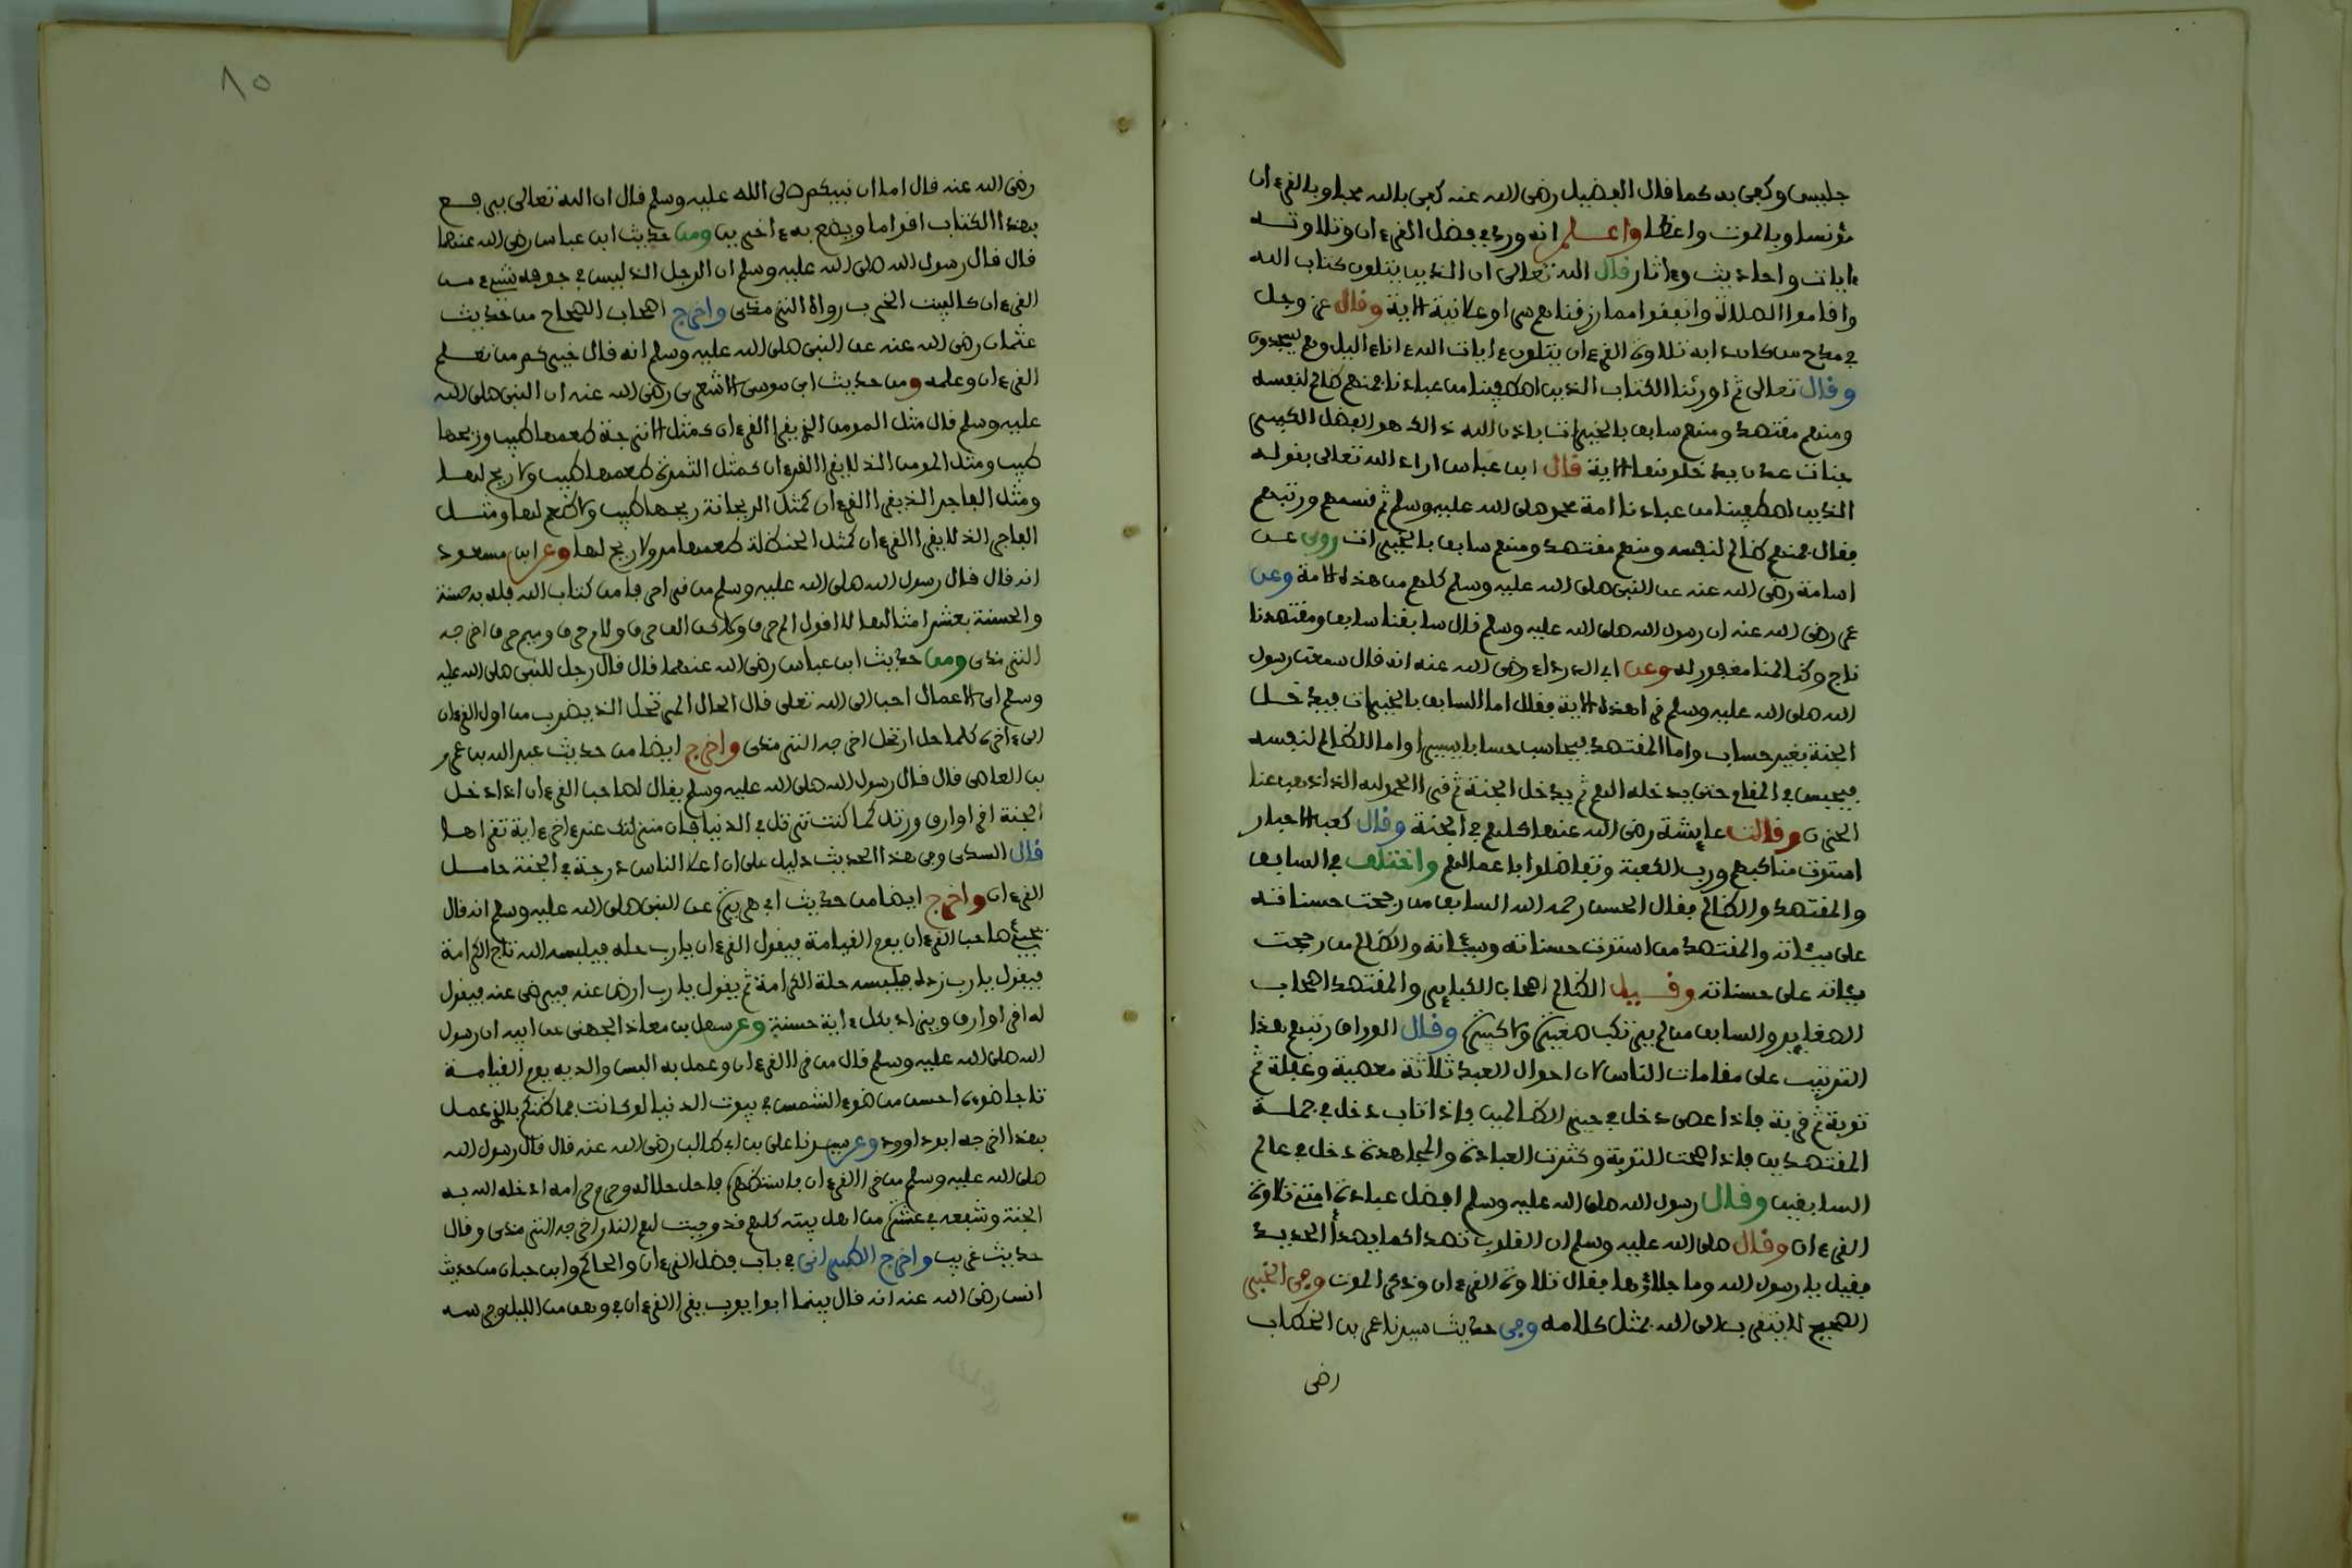 جليس وكفى به كما قال الفضيل رضى الله عنه كفى بالله محبا وبالقرءان
مؤنسا وبالموت واعظا واعلم انه ورد في فضل القرءان وتلاوته
ءايات واحاديث وءاثار قال الله تعالى ان الذين يتلون كتاب الله
واقاموا الصلاة وانفقوا مما رزقناهم سرا وعلانية الاية وقال عز وجل
في مدح من كان دابه تلاوة القرءان يتلون ءايات الله ءاناء اليل وهم يسجدون
وقال تعالى ثم اورثنا الكتاب الذين اصطفينا من عبادنا فمنهم ظالم لنفسه
ومنهم مقتصد ومنهم سابق بالخيرات باذن الله ذالك هو الفضل الكبير
جنات عدن يدخلونها الاية قال ابن عباس اراد الله تعالى بقوله
الذين اصطفينا من عبادنا امة محمد صلى الله عليه وسلم ثم قسمهم ورتبهم
فقال فمنهم ظالم لنفسه ومنهم مقتصد ومنهم سابق بالخيرات روى عن
اسامة رضى الله عنه عن النبى صلى الله عليه وسلم كلهم من هذه الامة وعن
عمر رضى الله عنه ان رسول الله صلى الله عليه وسلم قال سابقنا سابق ومقتصدنا
ناج وظالمنا مغفور له وعن ابى الدرداء رضى الله عنه انه قال سمعت رسول
الله صلى الله عليه وسلم قرا هذه الاية فقال اما السابق بالخيرات فيدخل
الجنة بغير حساب واما المقتصد فيحاسب حسابا يسيرا واما الظالم لنفسه
فيحبس في المقام حتى يدخله الهم ثم يدخل الجنة ثم قرا الحمد لله الذى اذهب عنا
الحزن وقالت عايشة رضى الله عنها كلهم في الجنة وقال كعب الاحبار
استوت مناكبهم ورب الكعبة وتفاضلوا باعمالهم واختلف في السابق
والمقتصد والظالم فقال الحسن رحمه الله السابق من رجحت حسناته
على سيئاته والمقتصد من استوت حسناته وسيئاته والظالم من رجحت
سيئاته على حسناته وقيل الظالم اصحاب الكباير والمقتصد اصحاب
الصغاير والسابق من لم يرتكب صغيرة ولا كبيرة وقال الوراق رتبهم هذا
الترتيب على مقامات الناس لان احوال العبد ثلاثة معصية وغفلة ثم
توبة ثم قربة فاذا عصى دخل في حيز الظالمين فاذا تاب دخل في جملة
المقتصدين فاذا صحت التوبة وكثرت العبادة والمجاهدة دخل في عالم
السابقين وقال رسول الله صلى الله عليه وسلم افضل عبادة امتى تلاوة
القرءان وقال صلى الله عليه وسلم ان القلوب تصدا كما يصدا الحديد
فقيل يا رسول الله وما جلاؤها فقال تلاوة القرءان وذكر الموت وفى الخبر
الصحيح لا يتقرب الى الله بمثل كلامه وفى حديث سيدنا عمر بن الخطاب
رضى
٨٥
رضى الله عنه قال اما ان نبيكم صلى الله عليه وسلم قال ان الله تعالى يرفع
بهذا الكتاب اقواما ويضع به ءاخرين ومن حديث ابن عباس رضى الله عنهما
قال قال رسول الله صلى الله عليه وسلم ان الرجل الذى ليس في جوفه شىء من
القرءان كالبيت الخرب رواه الترمذى واخرج اصحاب الصحاح من حديث
عثمان رضى الله عنه عن النبى صلى الله عليه وسلم انه قال خيركم من تعلم
القرءان وعلمه ومن حديث ابى موسى الاشعرى رضى الله عنه ان النبى صلى الله
عليه وسلم قال مثل المومن الذى يقرا القرءان كمثل الاترجة طعمها طيب وريحها
طيب ومثل المومن الذى لا يقرا القرءان كمثل الثمرة طعمها طيب ولا ريح لها
ومثل الفاجر الذى يقرا القرءان كمثل الريحانة ريحها طيب ولا طعم لها ومثل
الفاجر الذى لا يقرا القرءان كمثل الحنظلة طعمها مر ولا ريح لها وعن ابن مسعود
انه قال قال رسول الله صلى الله عليه وسلم من قرا حرفا من كتاب الله فله به حسنة
والحسنة بعشر امثالها لا اقول الم حرف ولاكن الف حرف ولام حرف وميم حرف اخرجه
الترمذى ومن حديث ابن عباس رضى الله عنهما قال قال رجل للنبى صلى الله عليه
وسلم اى الاعمال احب الى الله تعلى قال الحال المرتحل الذى يضرب من اول القرءان
الى ءاخره كلما حل ارتحل اخرجه الترمذى واخرج ايضا من حديث عبد الله بن عمر
بن العاصى قال قال رسول الله صلى الله عليه وسلم يقال لصاحب القرءان اذا دخل
الجنة اقرا وارق ورتل كما كنت ترتل في الدنيا فان منزلتك عند ءاخر ءاية تقراها
قال السدى وفى هذا الحديث دليل على ان اعلا الناس درجة في الجنة حامل
القرءان واخرج ايضا من حديث ابى هريرة عن النبى صلى الله عليه وسلم انه قال
يجيئ صاحب القرءان يوم القيامة فيقول القرءان يا رب حله فيلبسه الله تاج الكرامة
فيقول يا رب زده فيلبسه حلة الكرامة ثم يقول يا رب ارض عنه فيرضى عنه فيقول
له اقرا وارق ويزداد بكل ءاية حسنة وعن سهل بن معاذ الجهنى عن ابيه ان رسول
الله صلى الله عليه وسلم قال من قرا القرءان وعمل به البس والديه يوم القيامة
تاجا ضوءه احسن من ضوء الشمس في بيوت الدنيا لو كانت فما ظنكم بالذى عمل
بهذا اخرجه ابو داوود وعن سيدنا على بن ابى طالب رضى الله عنه قال قال رسول الله
صلى الله عليه وسلم من قرا القرءان فاستظهره فاحل حلاله وحرم حرامه ادخله الله به
الجنة وشفعه في عشرة من اهل بيته كلهم قد وجبت لهم النار اخرجه الترمذى وقال
حديث غريب واخرج الطبرانى في باب فضل القرءان والحاكم وابن حبان من حديث
انس رضى الله عنه انه قال بينما ابو ايوب يقرا القرءان في وهن من الليل وفرسه